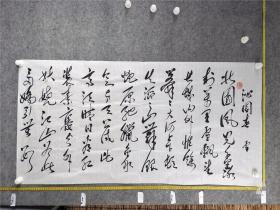 沁园春 雪
北国风光千里冰
封万里雪飘望
长城内外惟馀
莽莽大河上下顿
失滔滔山舞银
蛇原驰蜡象欲
与天公试比
高须晴日看红
装素裹分外
妖娆江山如此
多娇引无数